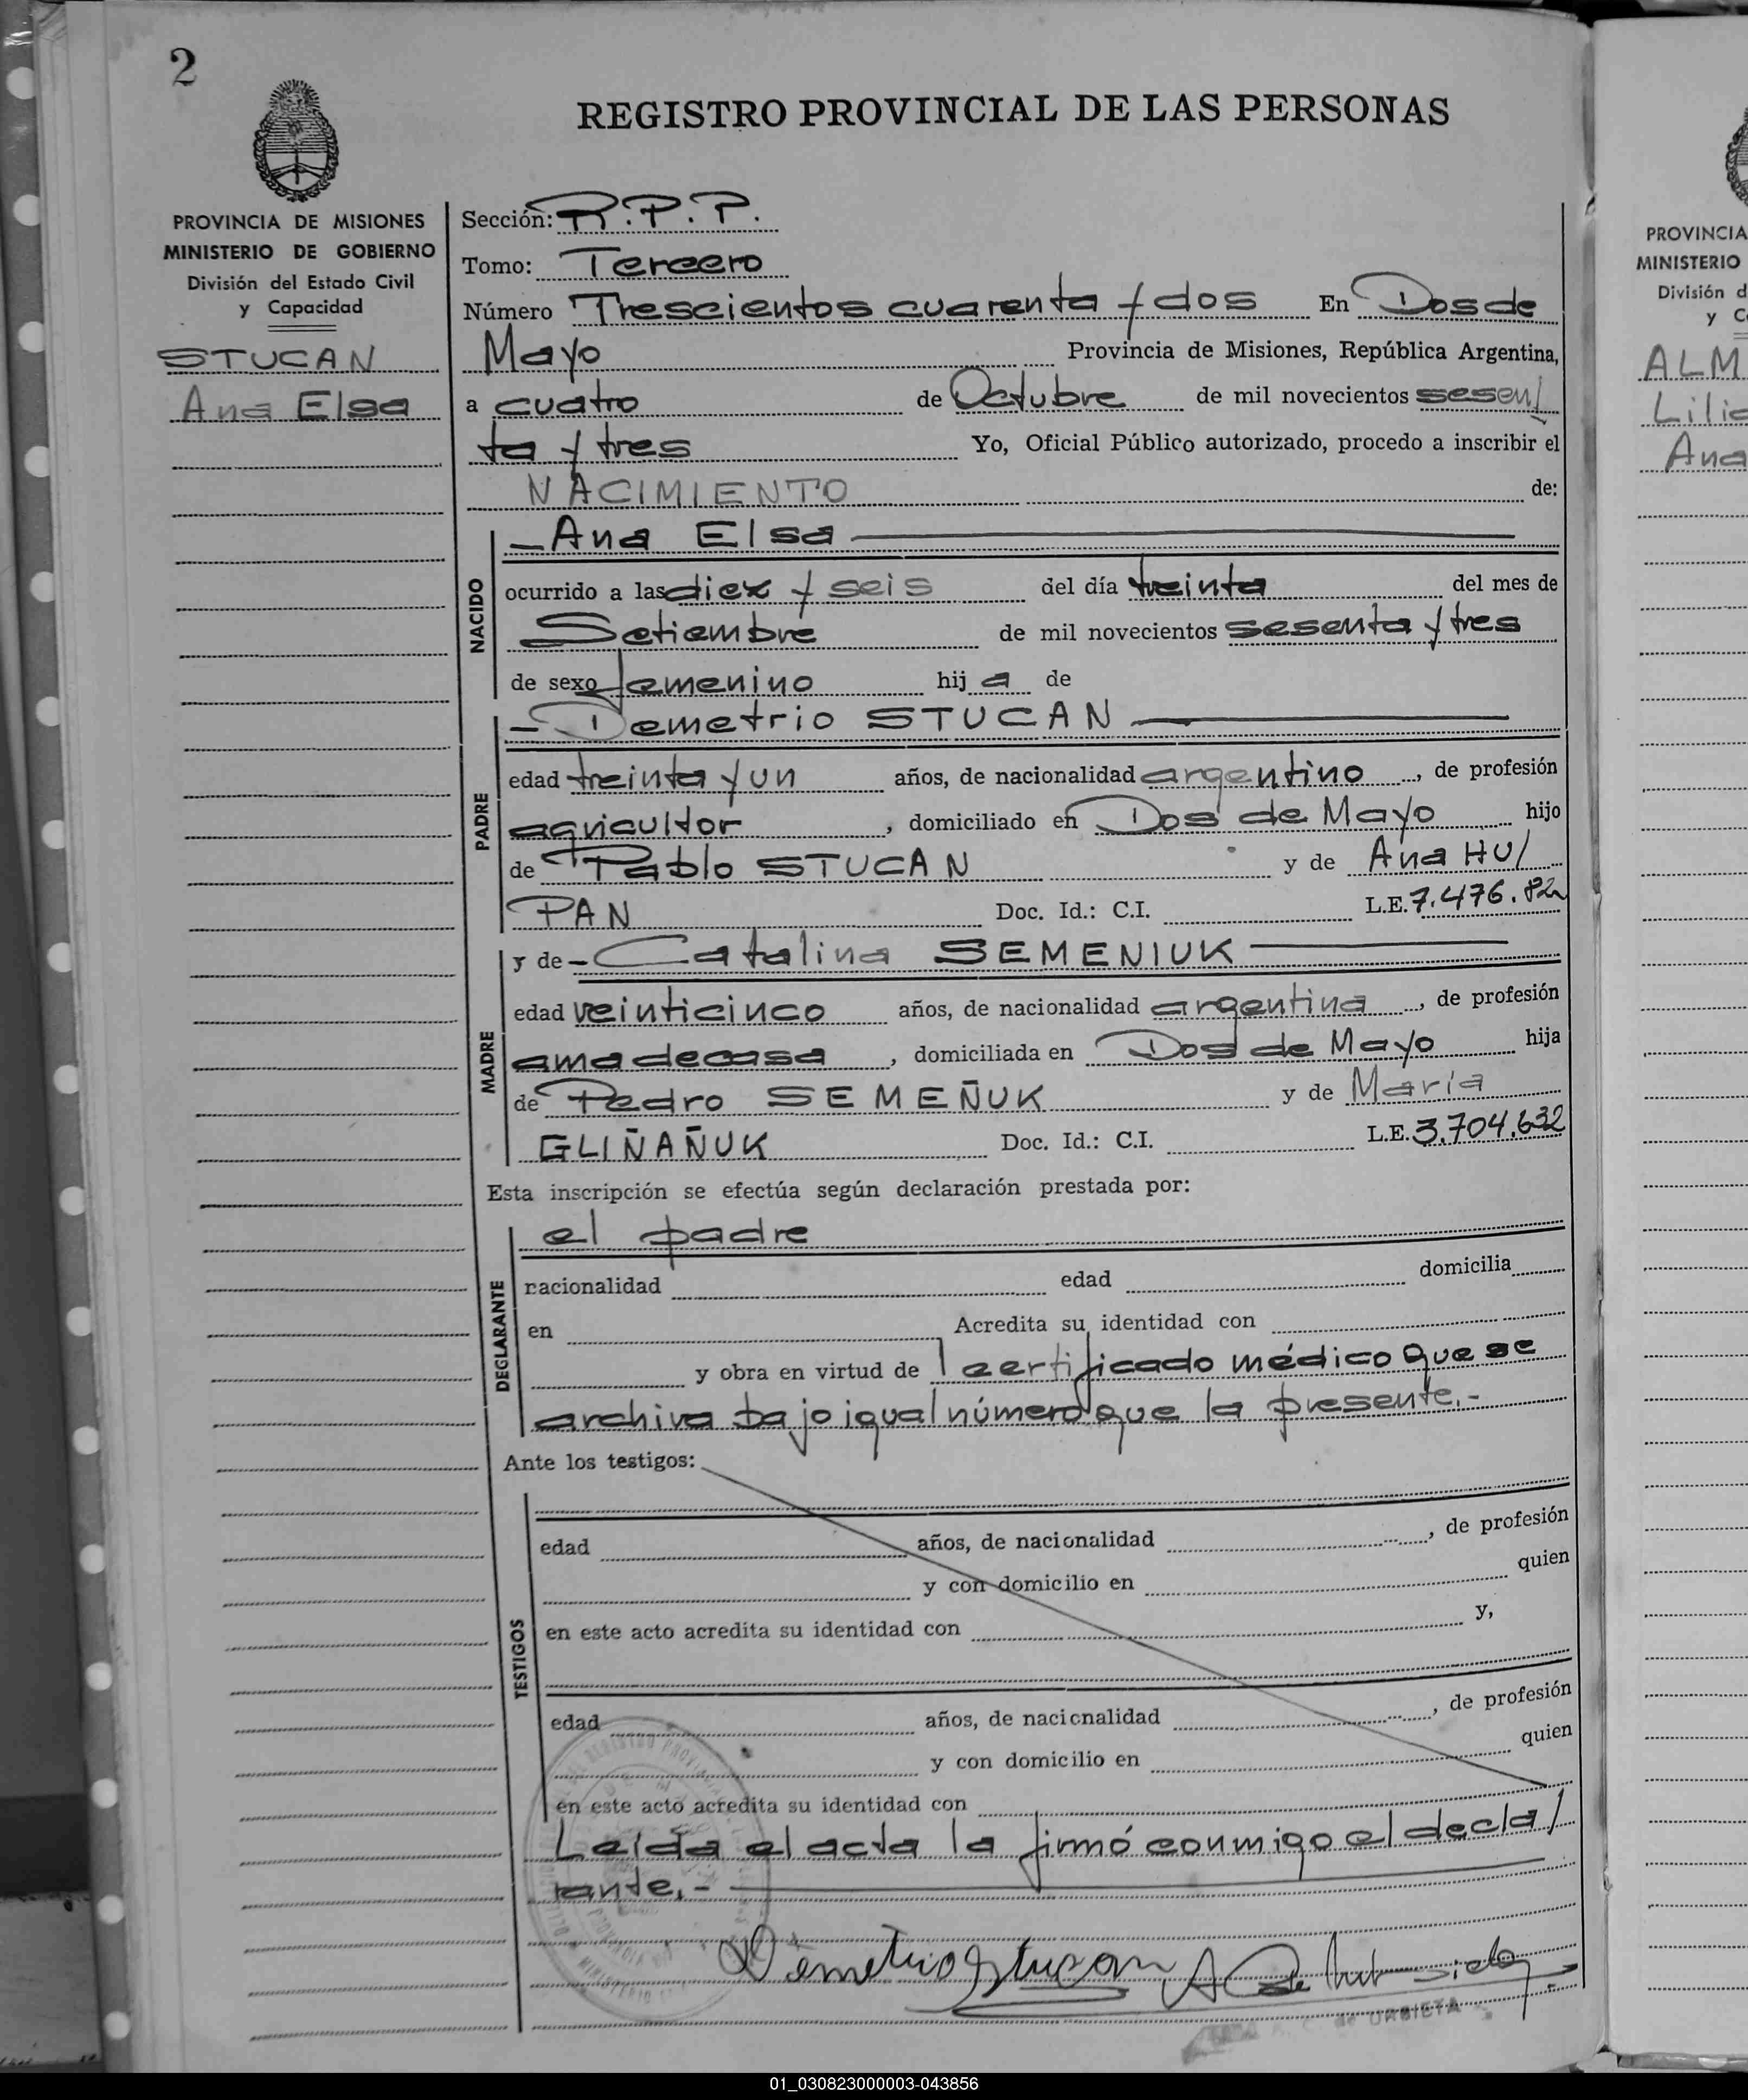 2
REGISTRO PROVINCIAL DE LAS PERSONAS
PROVINCIA DE MISIONES
MINISTERIO DE GOBIERNO
División del Estado Civil
y Capacidad
STUCAN
Ana Elsa
Sección: R.P.P.
Tomo: Tercero
Número Trescientos cuarenta y dos En Dos de
Mayo Provincia de Misiones, República Argentina,
a cuatro de Octubre de mil novecientos sesen/
ta y tres Yo, Oficial Público autorizado, procedo a inscribir el
NACIMIENTO de:
NACIDO
- Ana Elsa
ocurrido a las diez y seis del día treinta del mes de
Setiembre de mil novecientos sesenta y tres
de sexo femenino hij a de
PADRE
- Demetrio STUCAN
edad treinta y un años, de nacionalidad argentino, de profesión
agricultor, domiciliado en Dos de Mayo hijo
de Pablo STUCAN y de Ana HU/
PAN Doc. Id.: C.I. L.E.
MADRE
y de - Catalina SEMENIUK
edad veinticinco años, de nacionalidad argentina, de profesión
ama de casa, domiciliada en Dos de Mayo hija
de Pedro SEMEÑUK y de María
GLIÑAÑUK Doc. Id.: C.I. L.E. 3.704.632
Esta inscripción se efectúa según declaración prestada por:
DECLARANTE
el padre
nacionalidad edad domicilia
en Acredita su identidad con
y obra en virtud de l certificado médico que se
archiva bajo igual número que la presente.-
Ante los testigos:
TESTIGOS
edad años, de nacionalidad , de profesión
y con domicilio en quien
en este acto acredita su identidad con y,
edad años, de nacionalidad , de profesión
y con domicilio en quien
en este acto acredita su identidad con
Leída el acta la firmó conmigo el decla/
rante.-
Demetrio Stucan
de URBIETA
PROVINCIA
MINISTERIO
División d
y C
ALM
Lilia
Ana
01_030823000003-043856